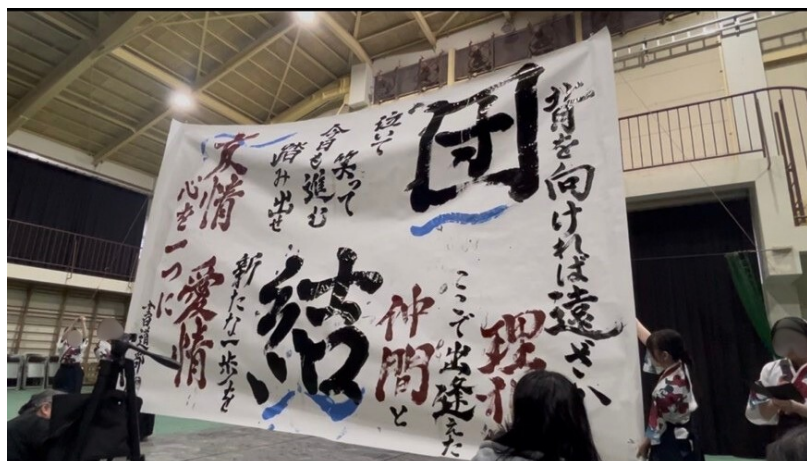 背を向ければ遠ざか
理
団
ここで出逢えた
仲間と
結
泣いて
笑って
今日も進む
踏み出せ
新たな一歩を
友情
愛情
心を一つに
書道部